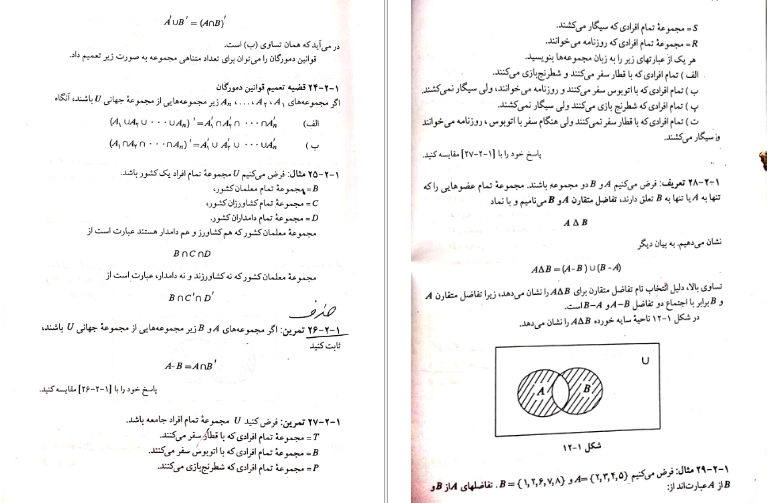 A′∪B′ = (A∩B)′
در می‌آید که همان تساوی (ب) است.
قوانین دمورگان را می‌توان برای تعداد متناهی مجموعه به صورت زیر تعمیم داد.
۱-۲-۲۴ قضیه تعمیم قوانین دمورگان
اگر مجموعه‌های A۱ ، A۲ ، . . . ، An زیر مجموعه‌هایی از مجموعهٔ جهانی U باشند، آنگاه
الف) (A۱ ∪A۲ ∪ ··· ∪An) ′ = A′۱ ∩ A′۲ ∩ ··· ∩A′n
ب ) (A۱ ∩A۲ ∩ ··· ∩An) ′ = A′۱ ∪ A′۲ ∪ ··· ∪A′n
۱-۲-۲۵ مثال: فرض می‌کنیم U مجموعهٔ تمام افراد یک کشور باشد.
B = مجموعهٔ تمام معلمان کشور،
C = مجموعهٔ تمام کشاورزان کشور،
D = مجموعهٔ تمام دامداران کشور.
مجموعهٔ معلمان کشور که هم کشاورز و هم دامدار هستند عبارت است از
B∩C∩D
مجموعهٔ معلمان کشور که نه کشاورزند و نه دامدار، عبارت است از
B∩C′∩D′
۱-۲-۲۶ تمرین: اگر مجموعه‌های A و B زیر مجموعه‌هایی از مجموعهٔ جهانی U باشند،
ثابت کنید
A-B = A∩B′
پاسخ خود را با [۱-۲-۲۶] مقایسه کنید.
۱-۲-۲۷ تمرین: فرض کنید U مجموعهٔ تمام افراد جامعه باشد.
T = مجموعهٔ تمام افرادی که با قطار سفر می‌کنند.
B = مجموعهٔ تمام افرادی که با اتوبوس سفر می‌کنند.
P = مجموعهٔ تمام افرادی که شطرنج‌بازی می‌کنند.
S = مجموعهٔ تمام افرادی که سیگار می‌کشند.
R = مجموعهٔ تمام افرادی که روزنامه می‌خوانند.
هر یک از عبارتهای زیر را به زبان مجموعه‌ها بنویسید.
الف ) تمام افرادی که با قطار سفر می‌کنند و شطرنج‌بازی می‌کنند.
ب ) تمام افرادی که با اتوبوس سفر می‌کنند و روزنامه می‌خوانند، ولی سیگار نمی‌کشند.
پ ) تمام افرادی که شطرنج بازی می‌کنند ولی سیگار نمی‌کشند.
ت ) تمام افرادی که با قطار سفر نمی‌کنند ولی هنگام سفر با اتوبوس ، روزنامه می‌خوانند
و سیگار می‌کشند.
پاسخ خود را با [۱-۲-۲۷] مقایسه کنید.
۱-۲-۲۸ تعریف: فرض می‌کنیم A و B دو مجموعه باشند. مجموعهٔ تمام عضوهایی را که
تنها به A یا تنها به B تعلق دارند، تفاضل متقارن A و B می‌نامیم و با نماد
A Δ B
نشان می‌دهیم. به بیان دیگر
AΔB = (A-B) ∪ (B-A)
تساوی بالا، دلیل انتخاب نام تفاضل متقارن برای AΔB را نشان می‌دهد، زیرا تفاضل متقارن A
و B برابر با اجتماع دو تفاضل A-B و B-A است.
در شکل ۱-۱۲ ناحیهٔ سایه خورده AΔB را نشان می‌دهد.
U
A B
شکل ۱-۱۲
۱-۲-۲۹ مثال: فرض می‌کنیم A={۲,۳,۴,۵} و B = {۱,۲,۶,۷,۸}. تفاضلهای A از B و
B از A عبارت‌اند از: